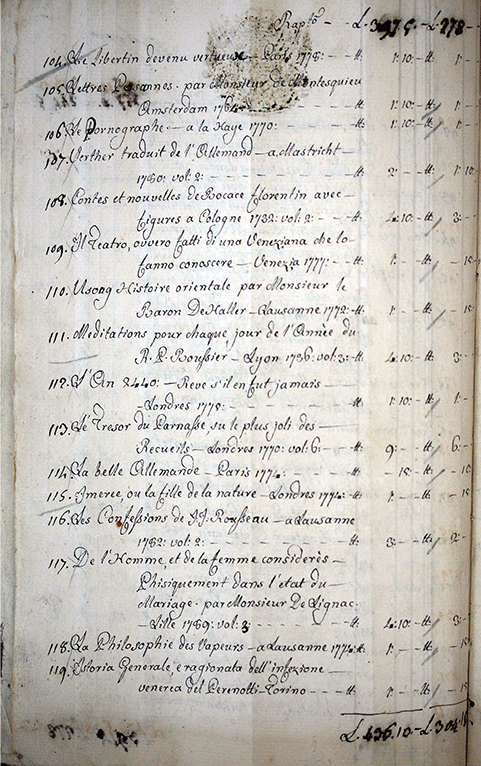 Rapto — L. 397 5.- L. 278 -
104. Le Libertin devenu vertueux — Paris 1778: — tt: 1: 10: - tt, 1: -
105. Lettres Persannes. par Monsieur de Montesquieu
Amsterdam 1764: — tt: 1: 10: - tt, 1: -
106. Le Pornographe — a la Haye 1770: — tt: 1: 10: - tt, 1: -
107. Verther traduit de l'Allemand — a Mastricht
1780: vol: 2: — tt: 2: - tt, 1: 10
108. Contes et nouvelles de Bocace florentin avec —
figures a Cologne 1732: vol: 2: — tt: 4: 10: - tt, 3: -
109. Il Teatro, ovvero fatti di una Veneziana che lo-
fanno conoscere — Venezia 1777: — tt: 1: - tt, - 15
110. Usong Histoire orientale par Monsieur le
Baron De Haller — Lausanne 1772: - tt: 1: - tt, - 15
111. Meditations pour chaque jour de l'Année du
R. P. Roussier — Lyon 1736: vol: 3: - tt: 4: 10: - tt, 3: -
112. L'An 2440: — Reve s'il en fut jamais —
Londres 1775: — tt: 1: 10: - tt, 1: -
113. Le Tresor du Parnasse, ou le plus joli des —
Recueils — Londres 1770: vol: 6: — tt: 9: - tt, 6: -
114. La belle Allemande — Paris 1774: — tt: - 15: - tt, -
115. Imerce, ou la fille de la nature — Londres 1774: - tt: 1: - tt, - 15
116. Les Confessions de J: J: Rousseau — a Lausanne
1782: vol: 2: — tt: 3: - tt, 2: -
117. De l'Homme, et de la femme considerès —
Phisiquement dans l'etat du —
Mariage. par Monsieur De Lignac.
— Lille 1789: vol: 3: — tt: 4: 10: - tt, 3: -
118. La Philosophie des Vapeurs — a Lausanne 1774: tt: 1: - tt, - 15
119. Istoria Generale, e ragionata dell'infezione —
venerea del Perenotti — Torino — tt: 1: - tt, - 15
L. 436. 10. - L. 304